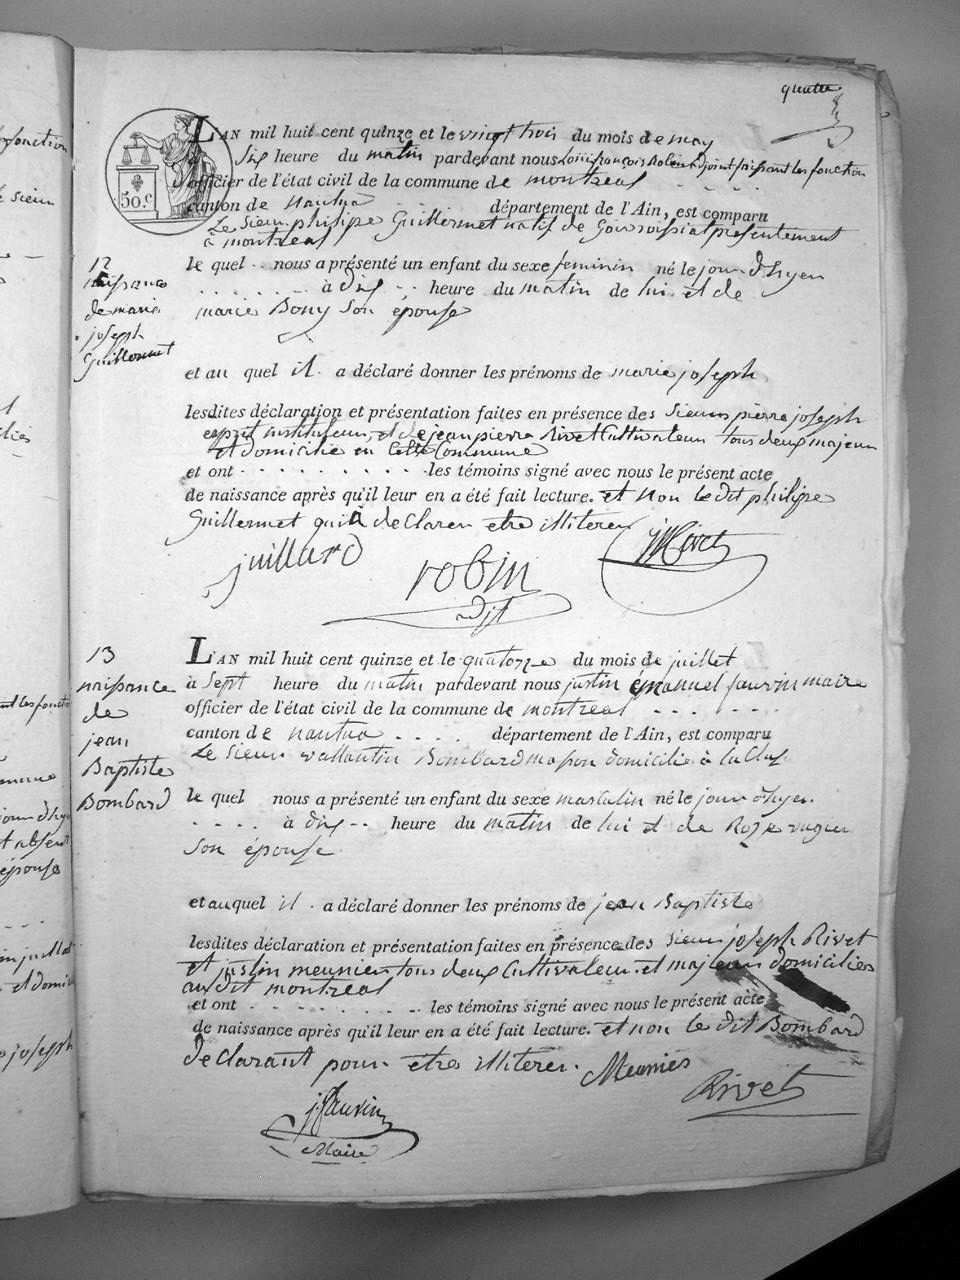 quatre
50.C
L'AN mil huit cent quinze et le vingt trois du mois de may
à dix heure du matin pardevant nous françois adjoint faisant les fonction
d'officier de l'état civil de la commune de montreal
canton de nantua département de l'Ain, est comparu
Le Sieur philipe Guillermet natif de presentement
a montreal
12
naissance
de marie
joseph
Guillermet
le quel nous a présenté un enfant du sexe feminin né le jour d'hyer
à dix heure du matin de lui et de
marie Bony son épouse
et au quel il a déclaré donner les prénoms de marie joseph
lesdites déclaration et présentation faites en présence des Sieurs pierre joseph
instituteur, et de jean pierre Rivet Cultivateur tous deux majeur
et domicilié en Cette Commune
et ont les témoins signé avec nous le présent acte
de naissance après qu'il leur en a été fait lecture. et non le dit philipe
Guillermet qui a declarer etre illiterer
juillard
robin
adjt
Rivet
13
naissance
de
jean
Baptiste
Bombard
L'AN mil huit cent quinze et le quatorze du mois de juillet
à Sept heure du matin pardevant nous justin emanuel jauvrin maire
officier de l'état civil de la commune de montreal
canton de nantua département de l'Ain, est comparu
Le Sieur vallantin Bombard masson domicilié à la Cluse
le quel nous a présenté un enfant du sexe masculin né le jour d'hyer
à dix heure du matin de lui et de Roze
Son épouse
et auquel il a déclaré donner les prénoms de jean Baptiste
lesdites déclaration et présentation faites en présence des Sieur joseph Rivet
et justin meunier tous deux Cultivateur et majeur domiciliés
au dit montreal
et ont les témoins signé avec nous le présent acte
de naissance après qu'il leur en a été fait lecture. et non le dit Bombard
declarant pour etre illiterer.
Meunier
Rivet
jauvrin
Maire